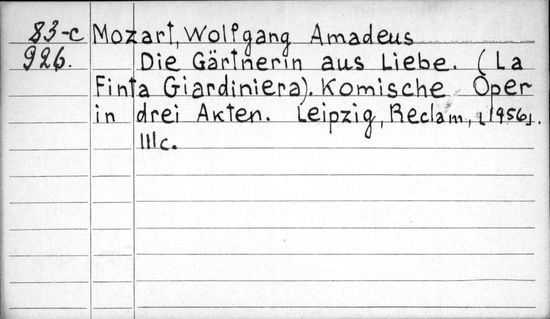 83-c Mozart, Wolfgang Amadeus
926. Die Gärtnerin aus Liebe. (La
Finta Giardiniera). Komische Oper
in drei Akten. Leipzig, Reclam, [1956].
111c.